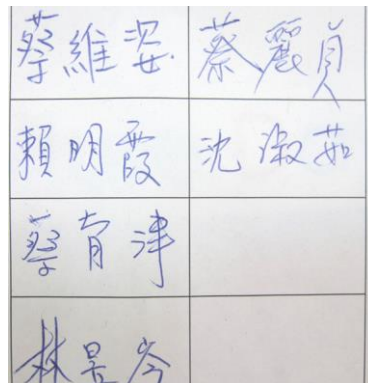 蔡維姿 蔡麗貞
賴明霞 沈淑茹
蔡育津
林昱岑